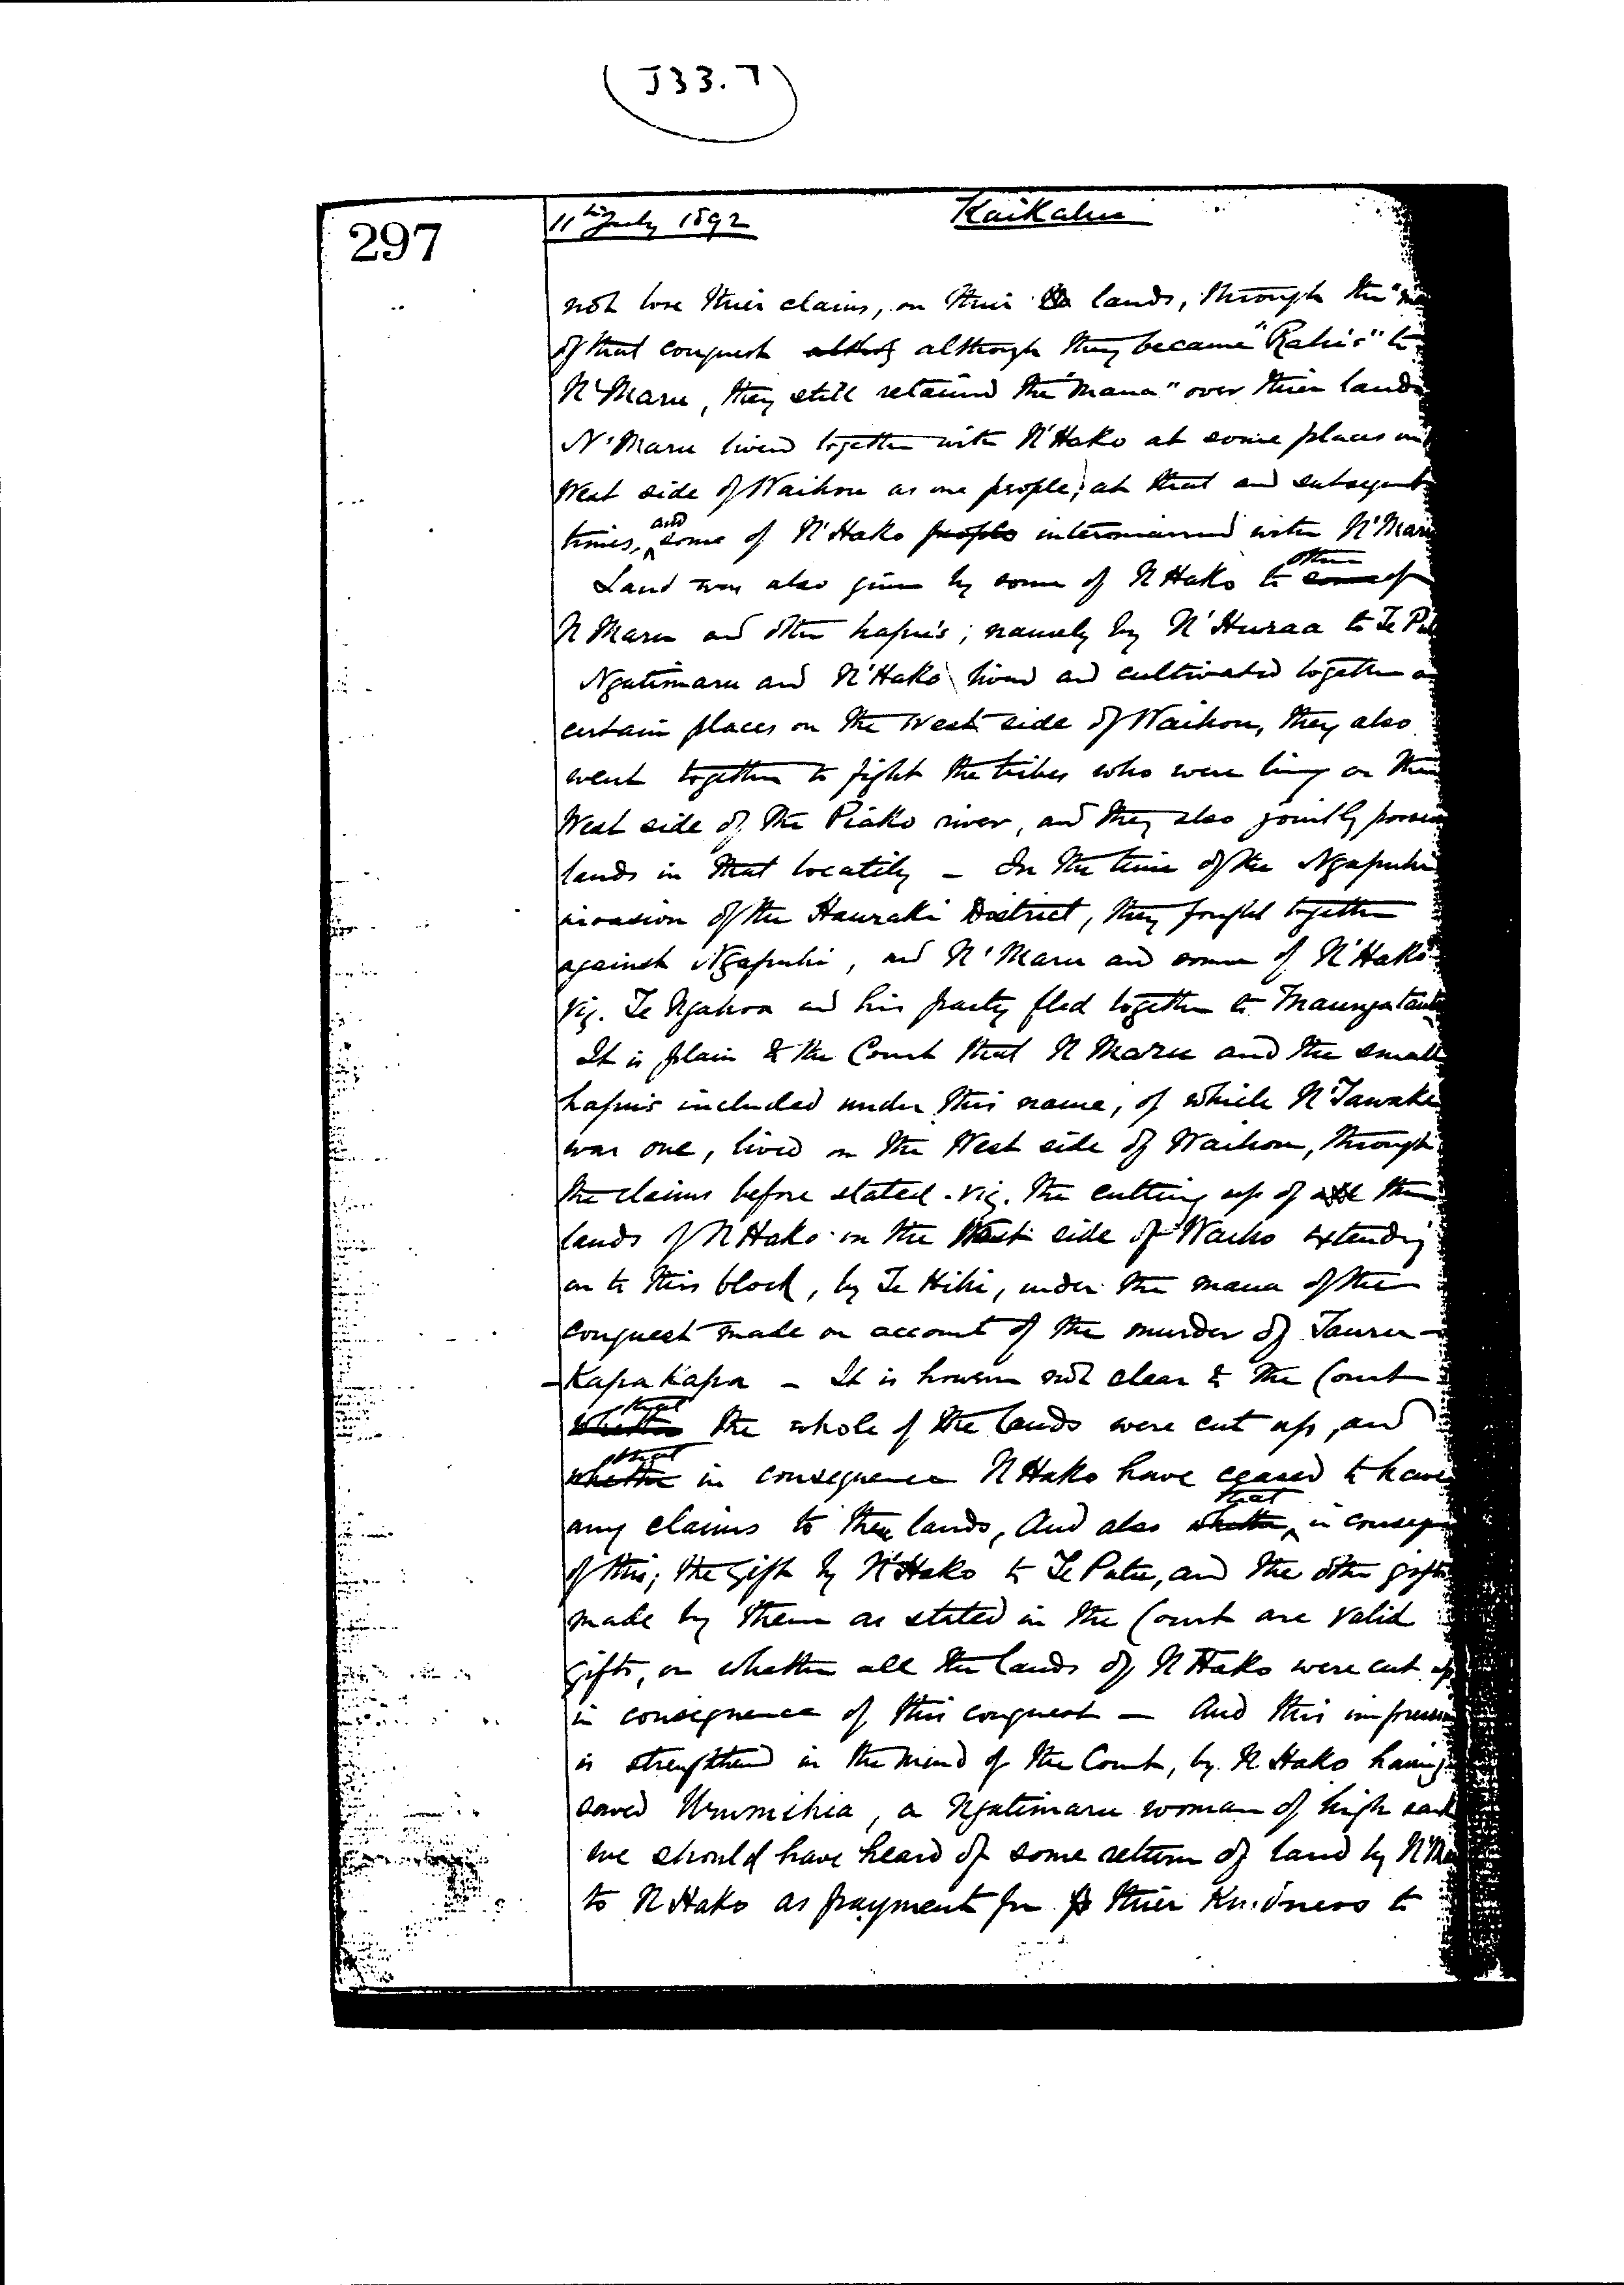 (J33.7)
297
11th July 1892 Kaikahu
not lose their claims, on their lands, through the "
of that conquest althog although they became "Rahi's" to
N'Maru, they still retained the "mana" over their lands
N'Maru lived together with N'Hako at some places on
West side of Waihou as one people; at that and subsequent
times, and some of N'Hako people intermarried with N'Maru
Land was also given by some of N Hako to some of other
N Maru and other hapu's; namely by N'Huraa to Te
Ngatimaru and N'Hako lived and cultivated together
certain places on the West side of Waihou, they also
went together to fight the tribes who were living on the
West side of the Piako river, and they also jointly
lands in that locality - In the time of the Ngapuhi
invasion of the Hauraki District, they fought together
against Ngapuhi, and N'Maru and some of N'Hako
viz. Te Ngahoa and his party fled together to Maungatau
It is plain to the Court that N Maru and the small
hapu's included under this name, of which N'Tawake
was one, lived on the West side of Waihou, through
the claims before stated - viz. the cutting up of all the
lands of N Hako on the West side of Waiho extending
on to this block, by Te Hihi, under the mana of the
conquest made on account of the murder of Tauru-
-Kapakapa - It is however not clear to the Court
whether that the whole of the lands were cut up, and
whether that in consequence N Hako have ceased to have
any claims to the lands, And also whether that in conseq
of this; the gift by N'Hako to Te Patu, and the other gifts
made by them as stated in the Court are valid
gifts, or whether all the lands of N Hako were cut up
in consequence of this conquest - And this impression
is strengthened in the mind of the Court, by N Hako having
saved Urumihia, a Ngatimaru woman of high rank
we should have heard of some return of land by N'Ma
to N Hako as payment for their Kindness to